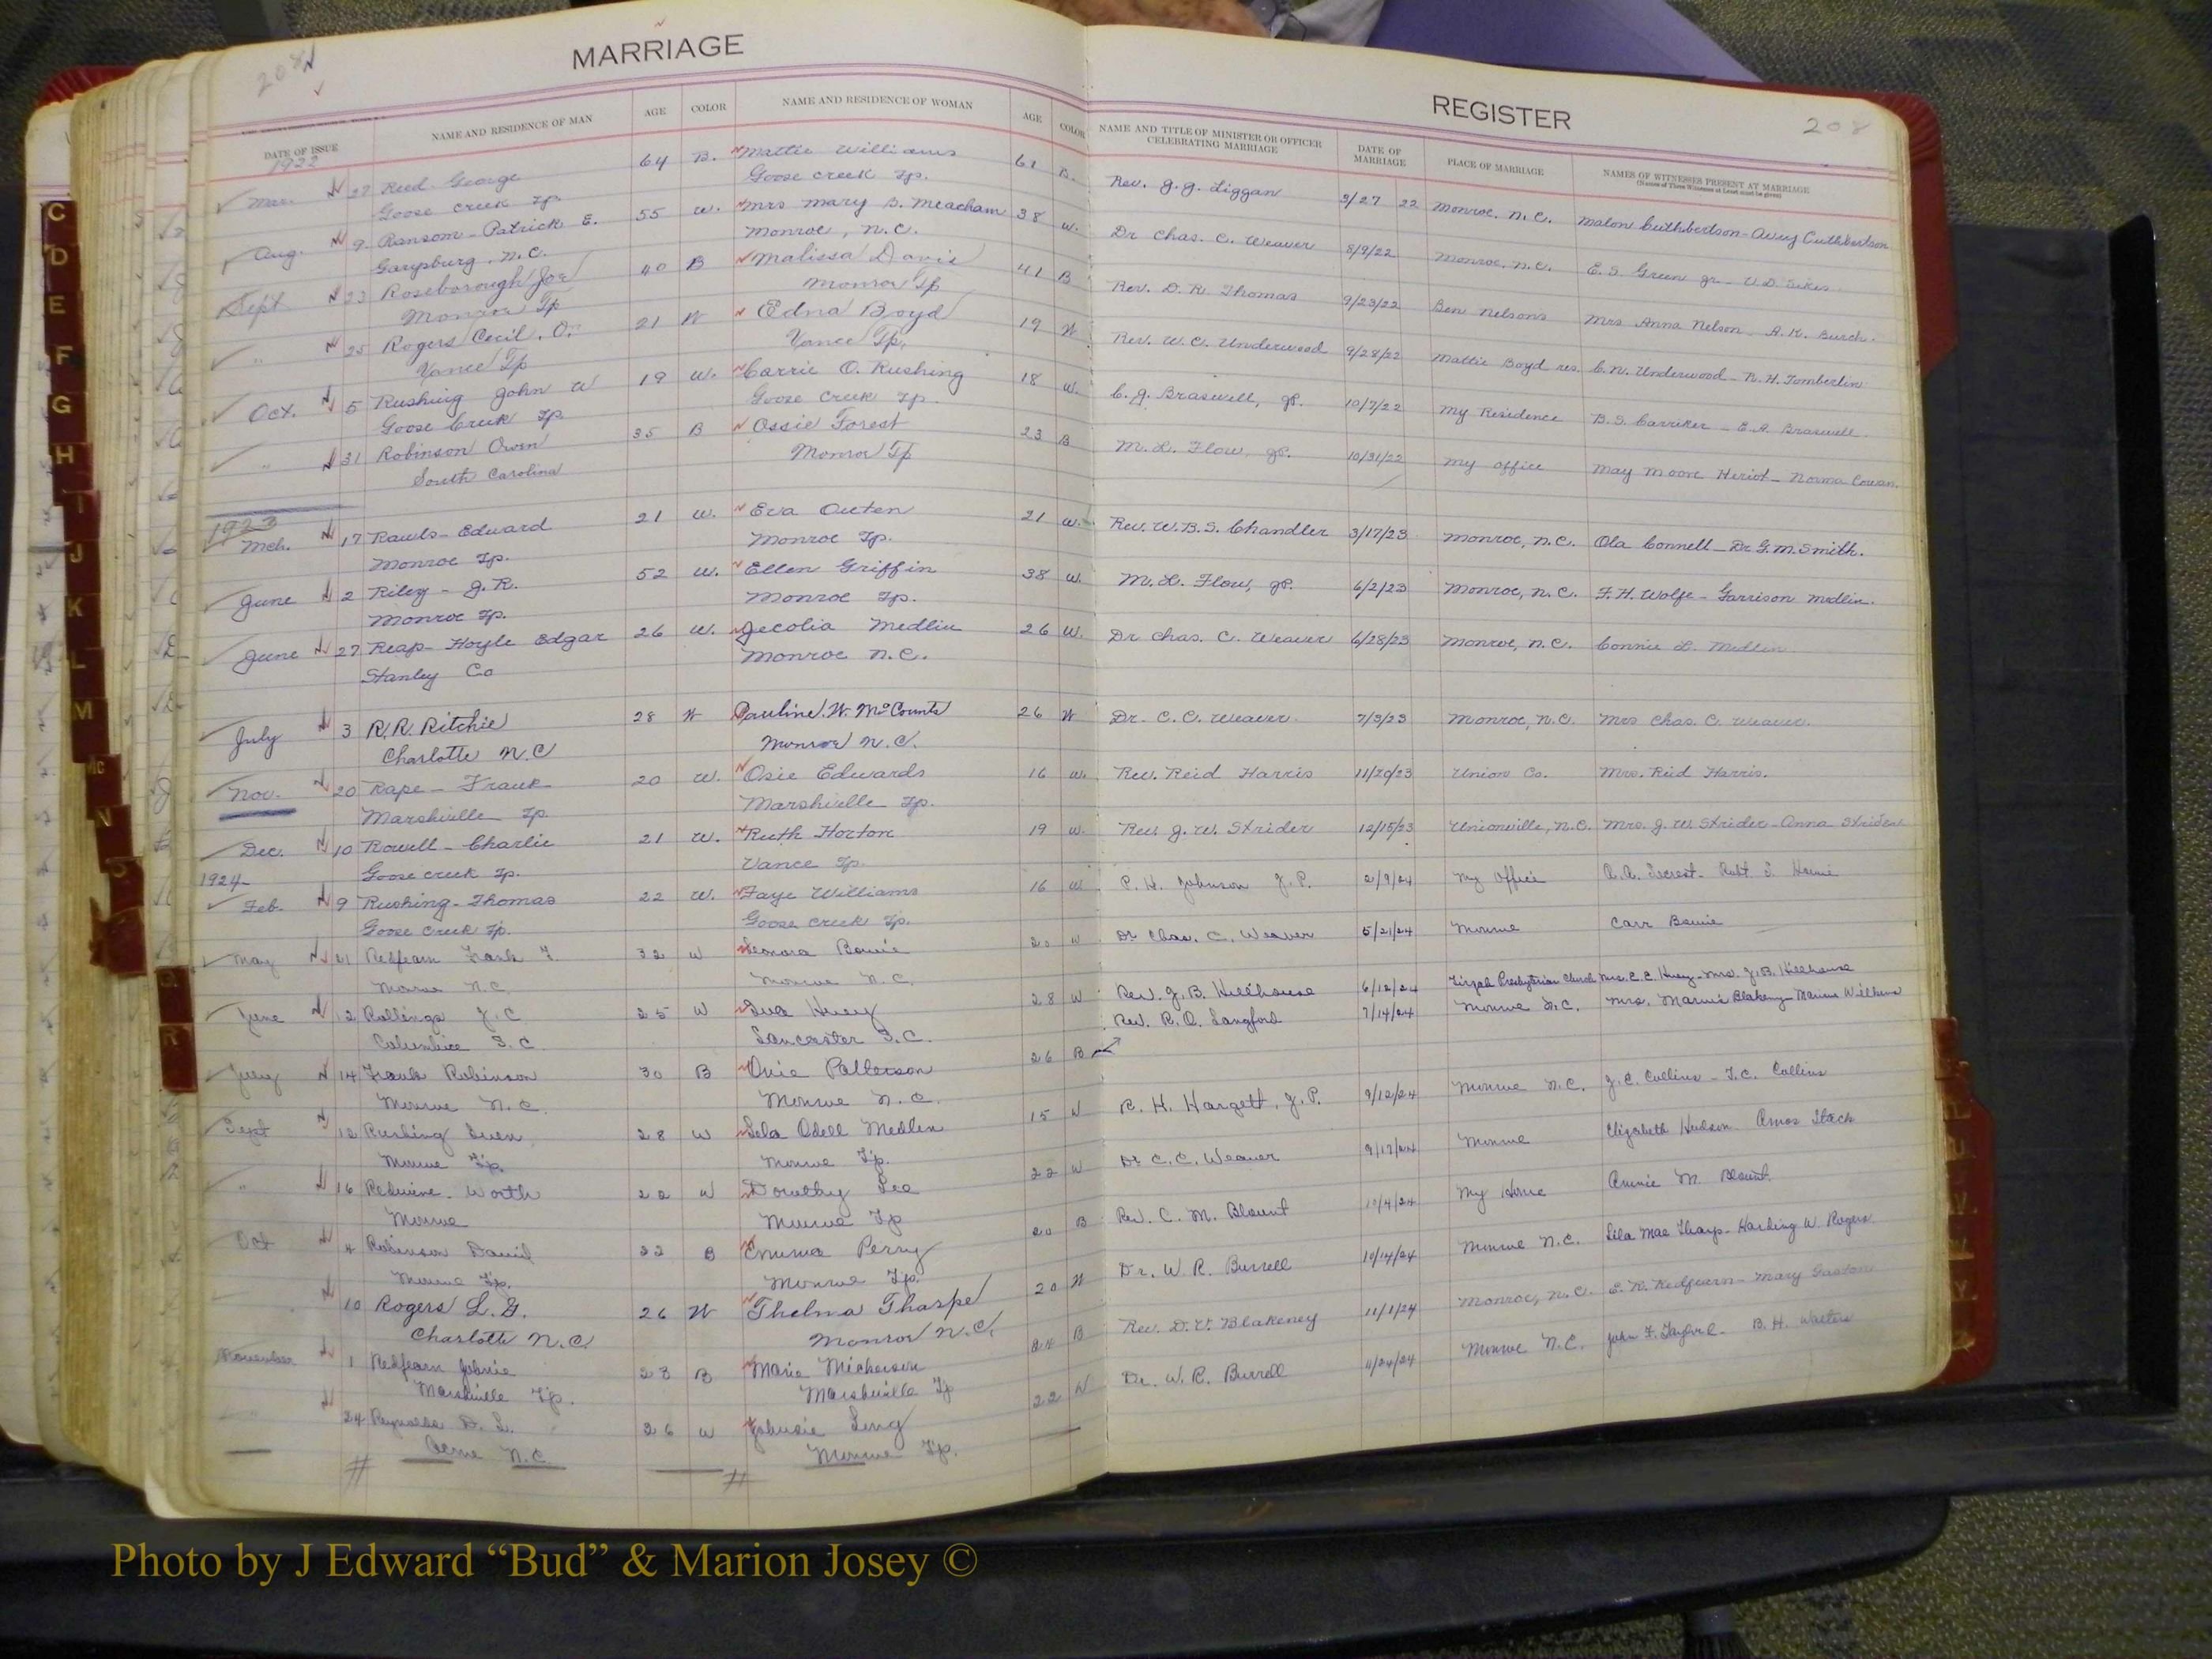 208
MARRIAGE
DATE OF ISSUE NAME AND RESIDENCE OF MAN AGE COLOR NAME AND RESIDENCE OF WOMAN AGE COLOR
1922
Mar. 27 Reed George 64 B. Mattie Williams 61 B.
Goose creek Tp. Goose creek Tp.
Aug. 9 Ransom - Patrick E. 55 W. Mrs Mary B. Meacham 38 W.
Garysburg, N.C. Monroe, N.C.
Sept 23 Roseborough Joe 40 B Malissa Davis 41 B
Monroe Tp Monroe Tp
" 25 Rogers Cecil. O. 21 W Edna Boyd 19 W
Vance Tp Vance Tp.
Oct. 5 Rushing John W 19 W. Carrie O. Rushing 18 W.
Goose Creek Tp. Goose Creek Tp.
" 31 Robinson Owen 35 B Ossie Forest 23 B
South Carolina Monroe Tp
1923
Mch. 17 Rawls - Edward 21 W. Eva Outen 21 W.
Monroe Tp. Monroe Tp.
June 2 Riley - J. R. 52 W. Ellen Griffin 38 W.
Monroe Tp. Monroe Tp.
June 27 Reap - Hoyle Edgar 26 W. Jecolia Medlin 26 W.
Stanley Co Monroe N.C.
July 3 R. R. Ritchie 28 W Pauline. W. McCounts 26 W
Charlotte N.C Monroe N.C.
Nov. 20 Rape - Frank 20 W. Osie Edwards 16 W.
Marshville Tp. Marshville Tp.
Dec. 10 Rowell - Charlie 21 W. Ruth Horton 19 W.
1924 Goose creek Tp. Vance Tp.
Feb. 9 Rushing - Thomas 22 W. Faye Williams 16 W
Goose Creek Tp. Goose creek Tp.
May 21 Redfearn Frank F. 32 W Leonora Bowie 20 W
Monroe N.C. Monroe N.C.
June 12 Rollings J. C 25 W Eva Huey 28 W
Columbia S.C. Lancaster S.C.
July 14 Frank Robinson 30 B Ovie Patterson 26 B
Monroe N.C. Monroe N.C.
Sept 12 Rushing 28 W Lela Odell Medlin 15 W
Monroe Tp. Monroe Tp.
" 16 Redwine - Worth 22 W Dorothy Lee 22 W
Monroe Monroe Tp
Oct 4 Robinson David 22 B Emma Perry 20 B
Monroe Tp. Monroe Tp.
10 Rogers L. G. 26 W Thelma Tharpe 20 W
Charlotte N.C. Monroe N.C.
November 1 Redfearn Johnie 23 B Marie B
Marshville Tp. Marshville Tp
24 Reynolds D. L. 26 W Johnsie Long 22 W
Acme N.C. Monroe Tp.
REGISTER
208
NAME AND TITLE OF MINISTER OR OFFICER CELEBRATING MARRIAGE DATE OF MARRIAGE PLACE OF MARRIAGE NAMES OF WITNESSES PRESENT AT MARRIAGE
(Names of Three Witnesses at Least must be given)
Rev. J. J. Liggan 3/27 22 Monroe, N.C. Malon Cuthbertson - Avey Cuthbertson
Dr Chas. C. Weaver 8/9/22 Monroe, N.C. E. S. Green Jr. - U. D. Sikes
Rev. D. R. Thomas 9/23/22 Ben Nelson's Mrs Anna Nelson - A. K. Burch.
Rev. W. C. Underwood 9/28/22 Mattie Boyd res. C. N. Underwood - R. H. Tomberlin
C. J. Braswell, JP. 10/7/22 My Residence B. S. Carriker - E. A. Braswell
M. L. Flow, JP. 10/31/22 My office May Moore Heriot - Norma Cowan.
Rev. W. B. S. Chandler 3/17/23 Monroe, N.C. Ola Connell - Dr G. M. Smith.
M. L. Flow, JP. 6/2/23 Monroe, N.C. F. H. Wolfe - Garrison Medlin.
Dr Chas. C. Weaver 6/28/23 Monroe, N.C. Connie L. Medlin
Dr. C. C. Weaver 7/3/23 Monroe, N.C. Mrs Chas. C. Weaver.
Rev. Reid Harris 11/20/23 Union Co. Mrs. Reid Harris.
Rev. J. W. Strider 12/15/23 Unionville, N.C. Mrs. J. W. Strider - Anna Strider
P. H. Johnson J. P. 2/9/24 My Office A. A. Secrest -
Dr Chas. C. Weaver 5/21/24 Monroe Carr Bowie
Rev. J. B. Hillhouse 6/12/24 Tirzah Presbyterian Church Mrs. C. C. Huey - Mrs. J. B. Hillhouse
Rev. R. O. Langford 7/14/24 Monroe N.C. Mrs. Mamie Blakeney -
R. H. Hargett, J. P. 9/12/24 Monroe N.C. J. E. Collins - T. C. Collins
Dr C. C. Weaver 9/17/24 Monroe Elizabeth Hudson Amos Stack
Rev. C. M. Blount 10/4/24 My Home Annie M. Blount.
Dr. W. R. Burrell 10/14/24 Monroe N.C. Lila Mae Tharp - Harding W. Rogers
Rev. D. V. Blakeney 11/1/24 Monroe, N.C. E. R. Redfearn - Mary Gaston
Dr. W. R. Burrell 11/24/24 Monroe N.C. John F. B. H. Walters
C
D
E
F
G
H
I
J
K
L
M
Mc
N
O
Q
R
Photo by J Edward “Bud” & Marion Josey ©